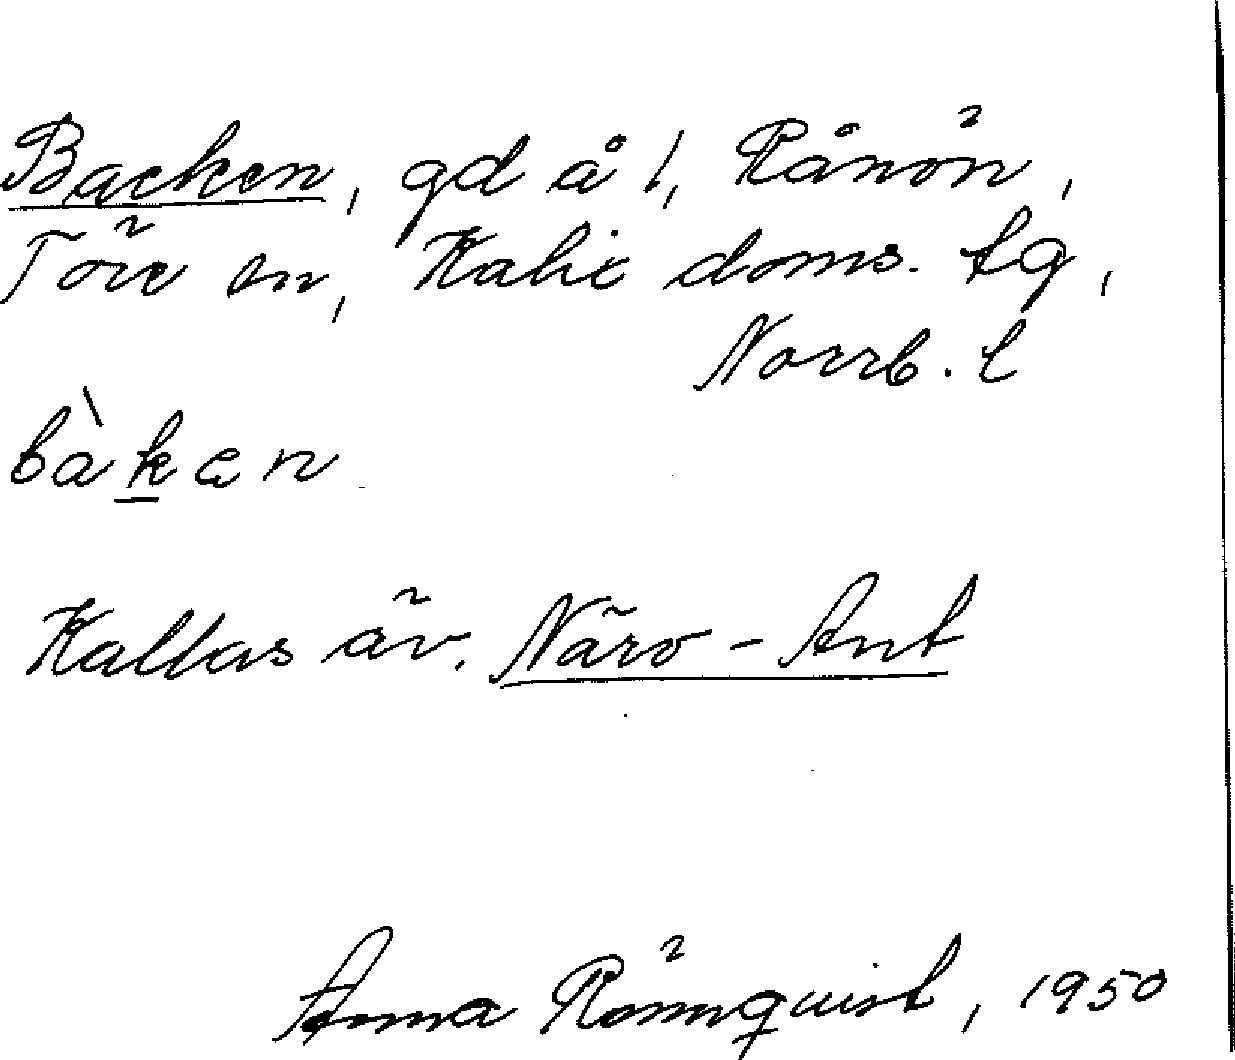 Backen, gd å 1, Rånön,
Töre sn, Kalix doms. tg,
Norrb. l
bàken
Kallas äv. Närv-Ant
Anna Rönnquist, 1950